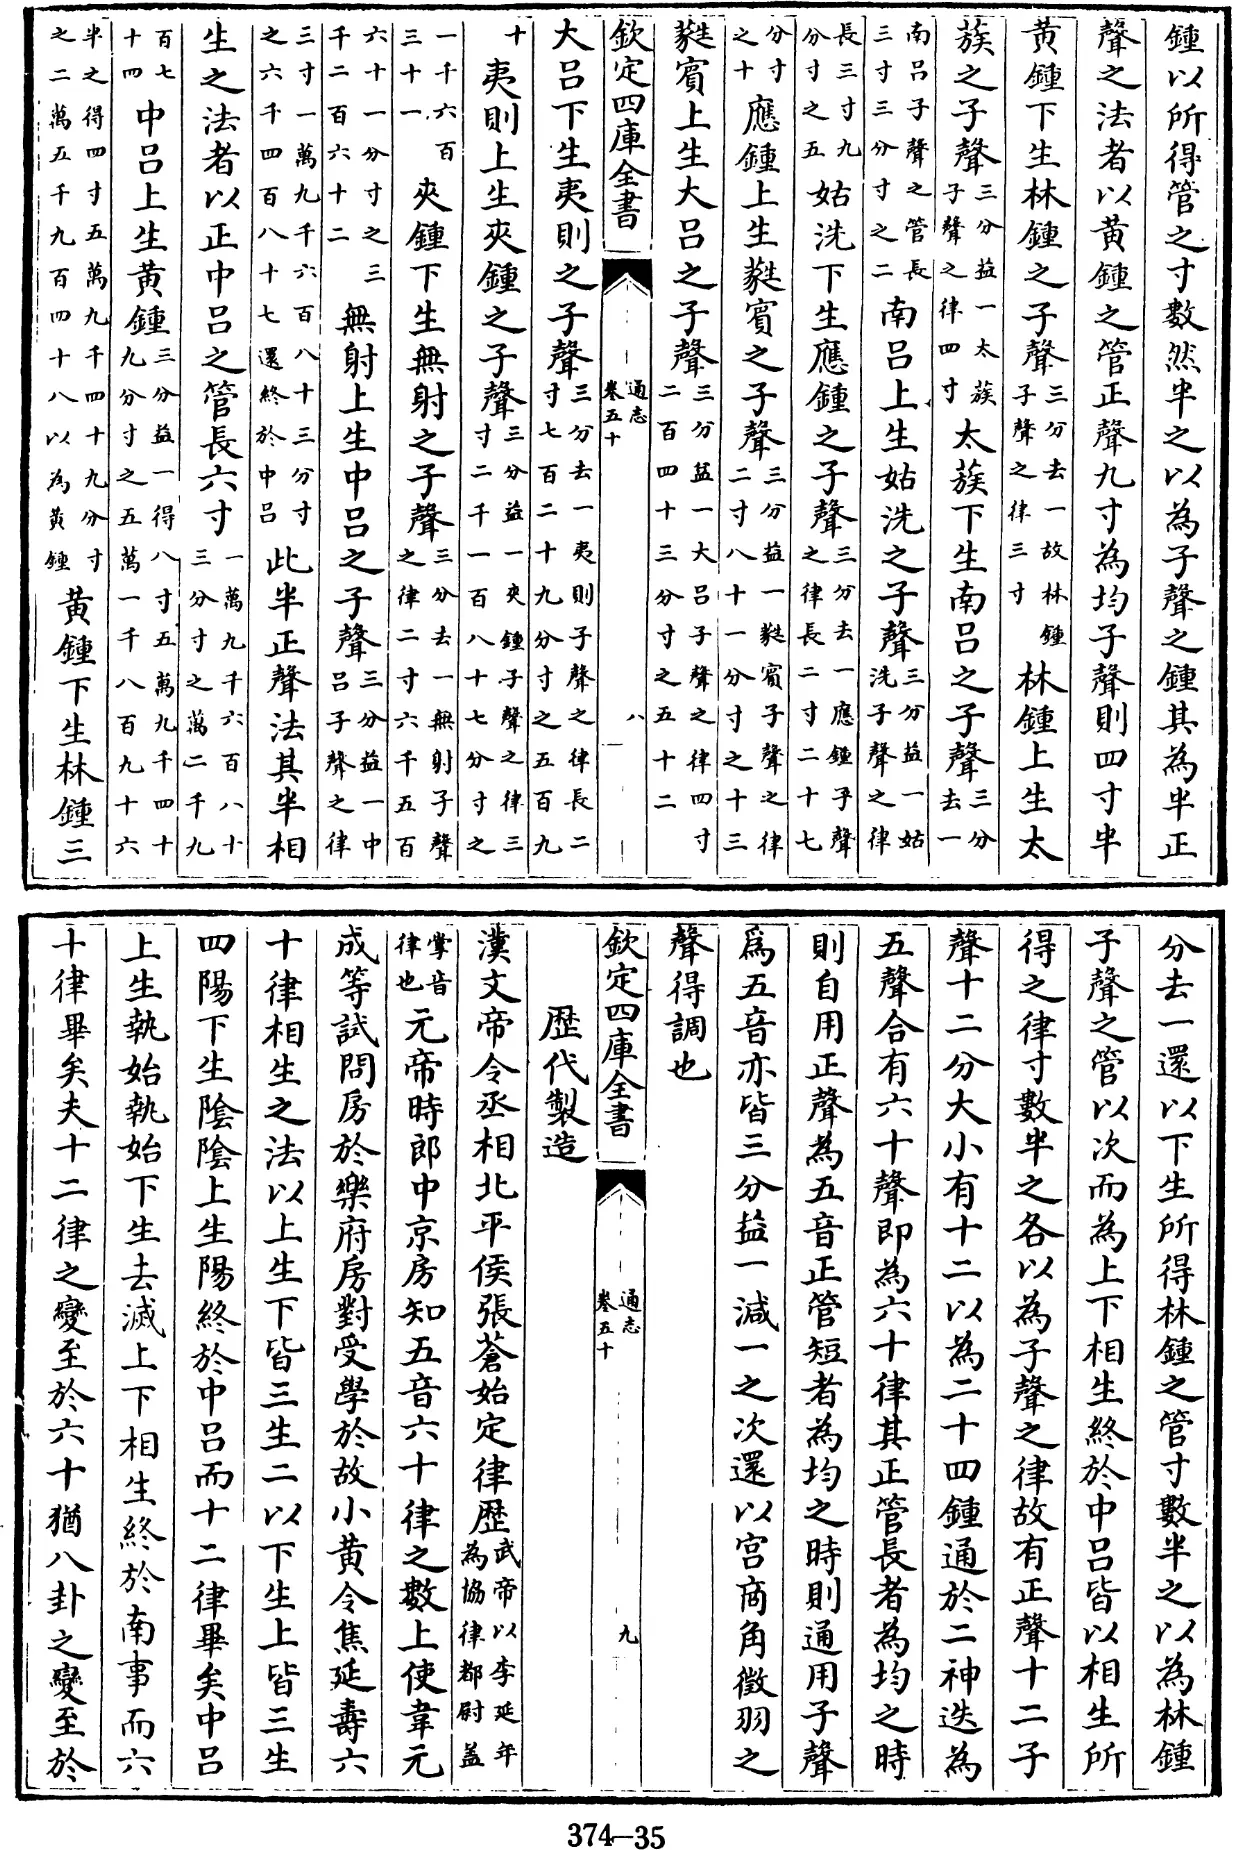 鍾以所得管之寸數然半之以為子聲之鍾其為半正
聲之法者以黃鍾之管正聲九寸為均子聲則四寸半
黃鍾下生林鍾之子聲三分去一故林鍾子聲之律三寸林鍾上生太
蔟之子聲三分益一太蔟子聲之律四寸太蔟下生南呂之子聲三分去一
南呂子聲之管長三寸三分寸之二南呂上生姑洗之子聲三分益一姑洗子聲之律
長三寸九分寸之五姑洗下生應鍾之子聲三分去一應鍾子聲之律長二寸二十七
分寸之十應鍾上生蕤賓之子聲三分益一蕤賓子聲之律二寸八十一分寸之十三
蕤賓上生大呂之子聲三分益一大呂子聲之律四寸二百四十三分寸之五十二
欽定四庫全書 通志卷五十 八
大呂下生夷則之子聲三分去一夷則子聲之律長二寸七百二十九分寸之五百九
十夷則上生夾鍾之子聲三分益一夾鍾子聲之律三寸二千一百八十七分寸之
一千六百三十一夾鍾下生無射之子聲三分去一無射子聲之律二寸六千五百
六十一分寸之三千二百六十二無射上生中呂之子聲三分益一中呂子聲之律
三寸一萬九千六百八十三分寸之六千四百八十七還終於中呂此半正聲法其半相
生之法者以正中呂之管長六寸一萬九千六百八十三分寸之萬二千九
百七十四中呂上生黃鍾三分益一得八寸五萬九千四十九分寸之五萬一千八百九十六
半之得四寸五萬九千四十九分寸之二萬五千九百四十八以為黃鍾黃鍾下生林鍾三
分去一還以下生所得林鍾之管寸數半之以為林鍾
子聲之管以次而為上下相生終於中呂皆以相生所
得之律寸數半之各以為子聲之律故有正聲十二子
聲十二分大小有十二以為二十四鍾通於二神迭為
五聲合有六十聲即為六十律其正管長者為均之時
則自用正聲為五音正管短者為均之時則通用子聲
為五音亦皆三分益一減一之次還以宮商角徵羽之
聲得調也
欽定四庫全書 通志卷五十 九
歷代製造
漢文帝令丞相北平侯張蒼始定律歷武帝以李延年為協律都尉蓋
掌音律也元帝時郎中京房知五音六十律之數上使韋元
成等試問房於樂府房對受學於故小黃令焦延壽六
十律相生之法以上生下皆三生二以下生上皆三生
四陽下生陰陰上生陽終於中呂而十二律畢矣中呂
上生執始執始下生去滅上下相生終於南事而六
十律畢矣夫十二律之變至於六十猶八卦之變至於
374—35